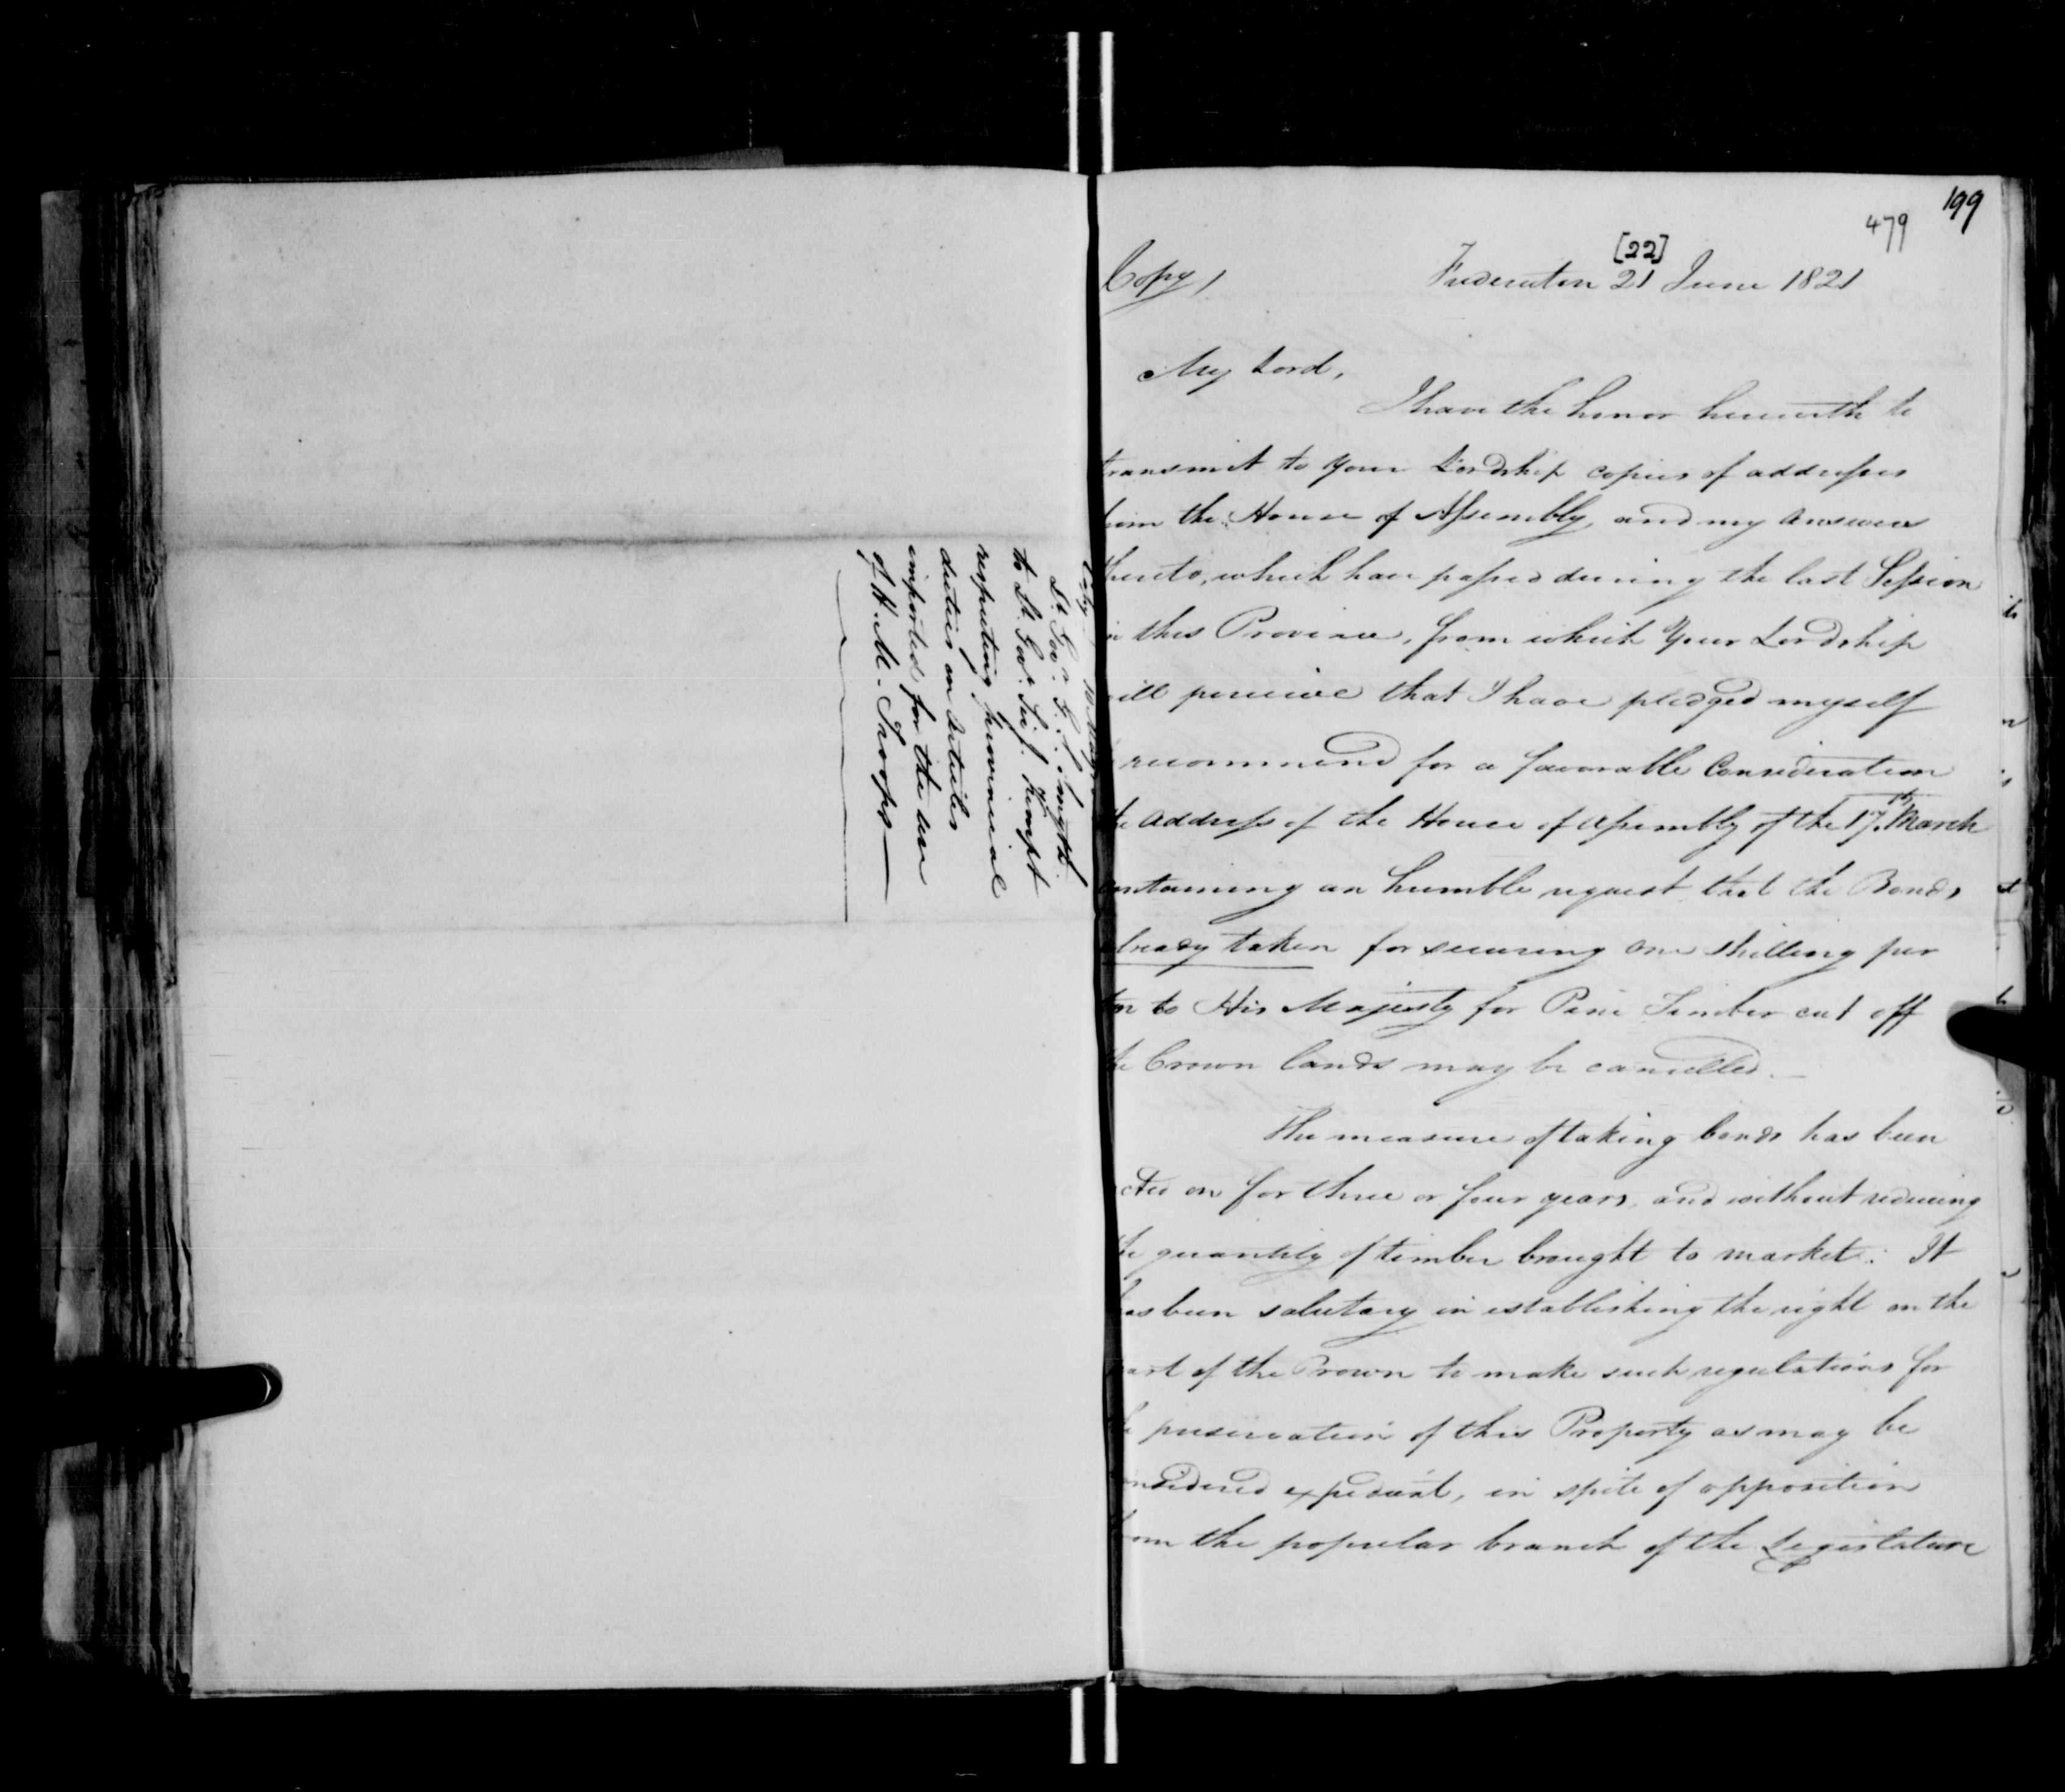 Lt. Gov. G. S. Smyth
to Lt. Gov. Sir J. Kempt
respecting provincial
duties on Articles
imported for the use
of H. M. Troops
199
479
[22]
Copy Fredericton 21 June 1821
My Lord,
I have the honor herewith to
transmit to Your Lordship copies of addresses
from the House of Assembly, and my Answers
thereto, which have passed during the last Session
in this Province, from which Your Lordship
will perceive that I have pledged myself
recommend for a favorable Consideration
the Address of the House of Assembly of the 17th March
containing an humble request that the Bonds
already taken for securing one Shilling per
ton to His Majesty for Pine Timber cut off
the Crown lands may be cancelled.
The measure of taking bonds has been
acted on for three or four years, and without reducing
the quantity of timber brought to market. It
has been salutary in establishing the right on the
part of the Crown to make such regulations for
the preservation of this Property as may be
considered expedient, in spite of opposition
from the popular branch of the Legislature